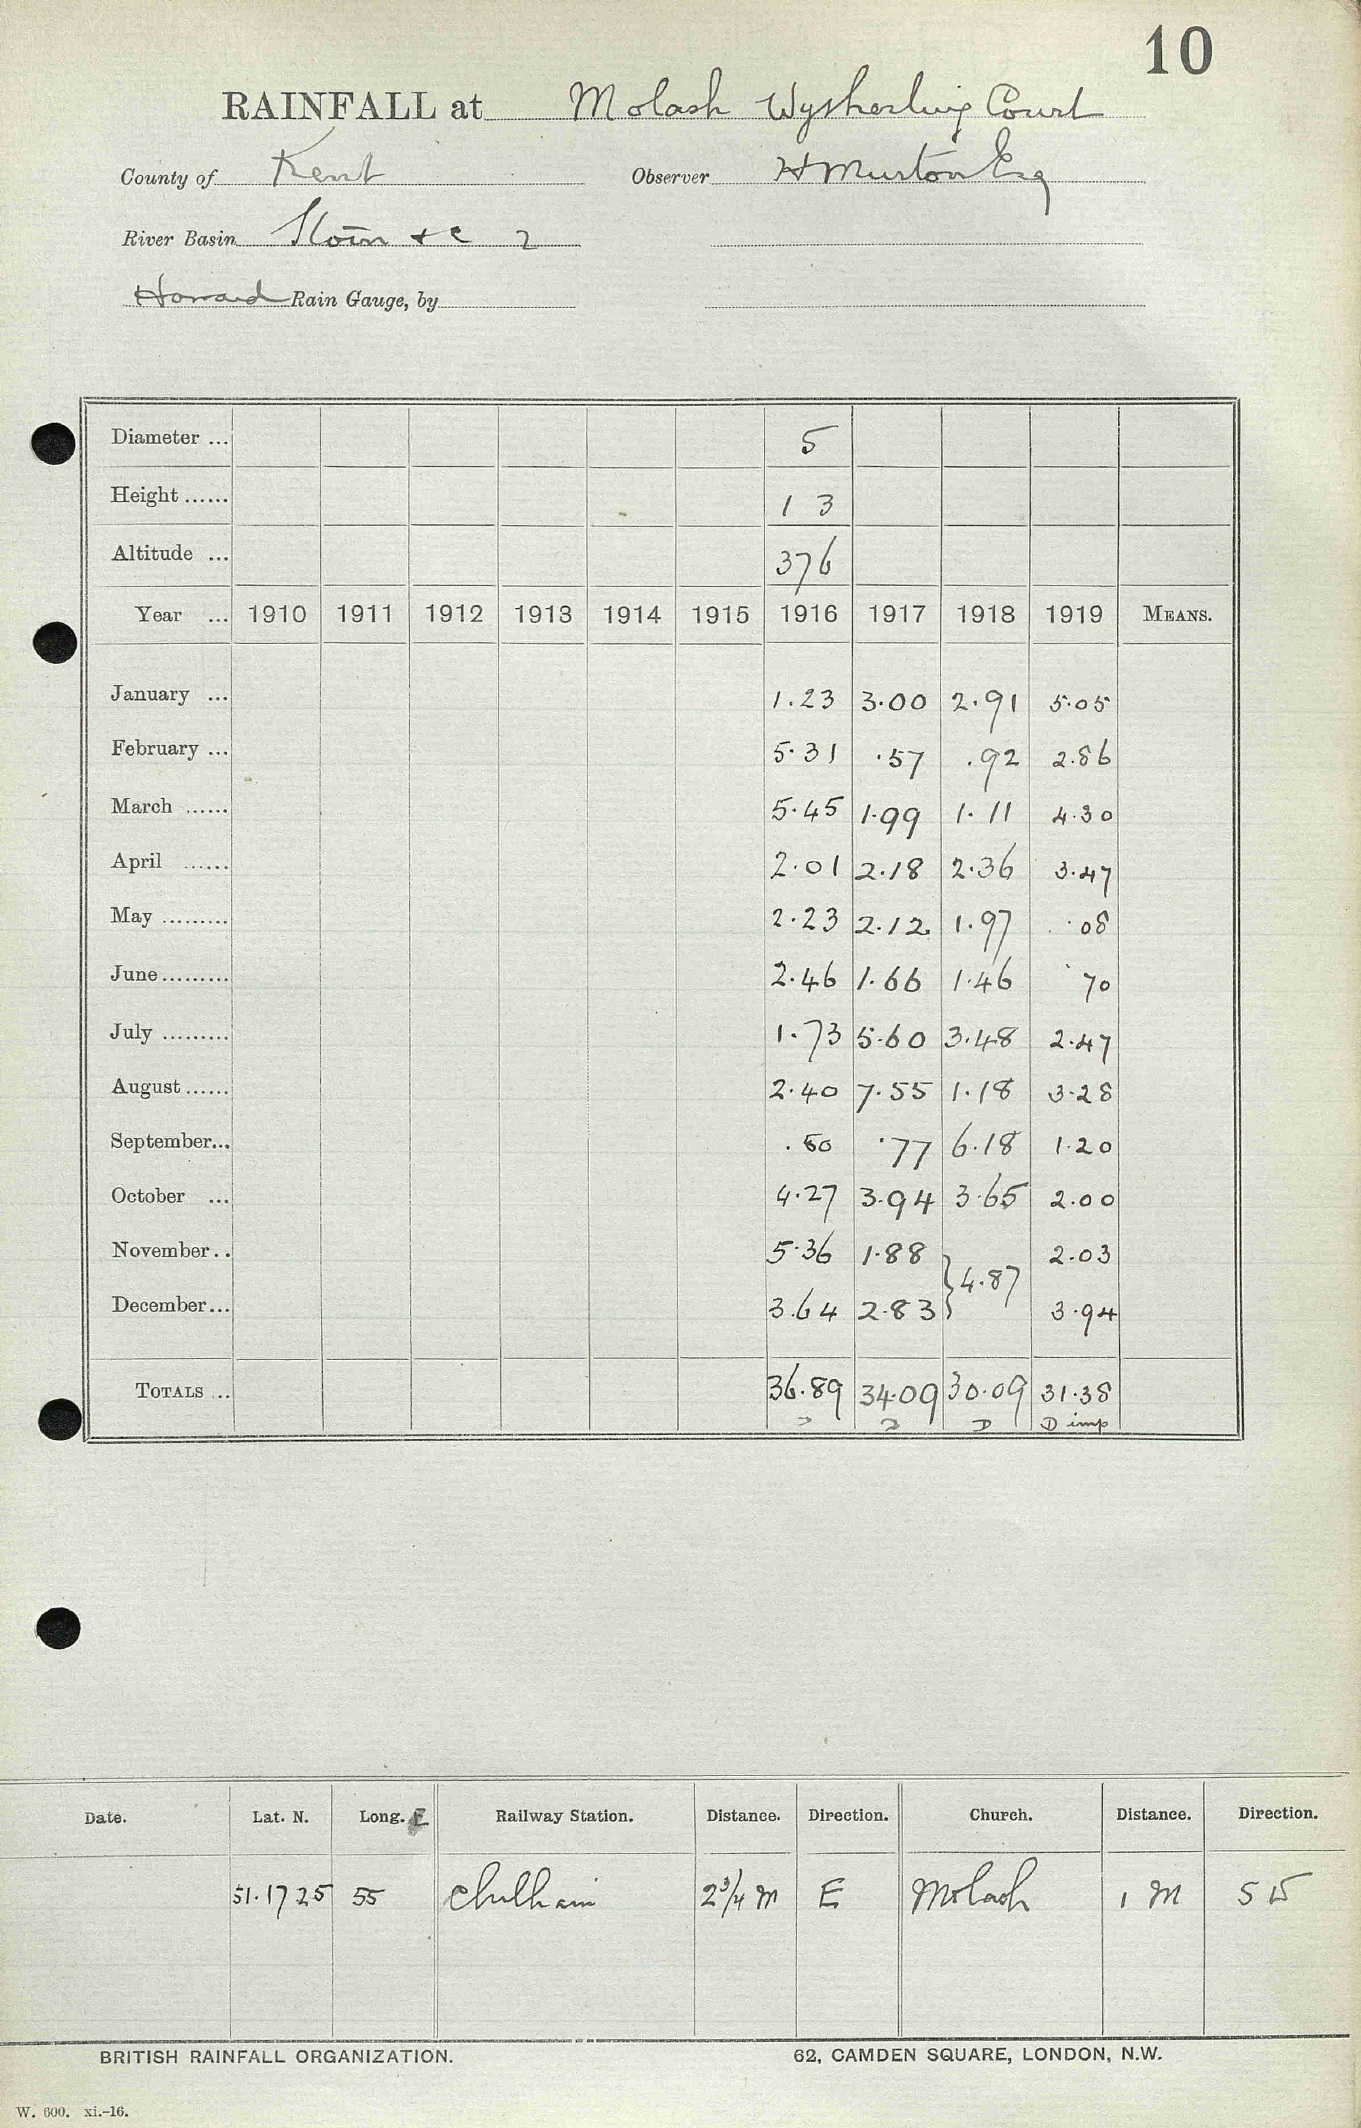 10
RAINFALL at Molash Wytherling Court
County of Kent Observer H Murton Esq
River Basin Stour &c 2
Howard Rain Gauge, by
Diameter ... 5
Height ...... 1 3
Altitude ... 376
Year ... 1910 1911 1912 1913 1914 1915 1916 1917 1918 1919 MEANS.
January ... 1.23 3.00 2.91 5.05
February ... 5.31 .57 .92 2.86
March ...... 5.45 1.99 1.11 4.30
April ...... 2.01 2.18 2.36 3.47
May ......... 2.23 2.12 1.97 .08
June ......... 2.46 1.66 1.46 .70
July ......... 1.73 5.60 3.48 2.47
August ...... 2.40 7.55 1.18 3.28
September... .80 .77 6.18 1.20
October ... 4.27 3.94 3.65 2.00
November.. 5.36 1.88 } 4.87 2.03
December... 3.64 2.83 3.94
TOTALS ... 36.89 34.09 30.09 31.38
D D D D imp
Date. Lat. N. Long. E Railway Station. Distance. Direction. Church. Distance. Direction.
51.17 25 55 Chilham 2 3/4 M E Molash 1 M S
BRITISH RAINFALL ORGANIZATION. 62, CAMDEN SQUARE, LONDON, N.W.
W. 600. xi.-16.